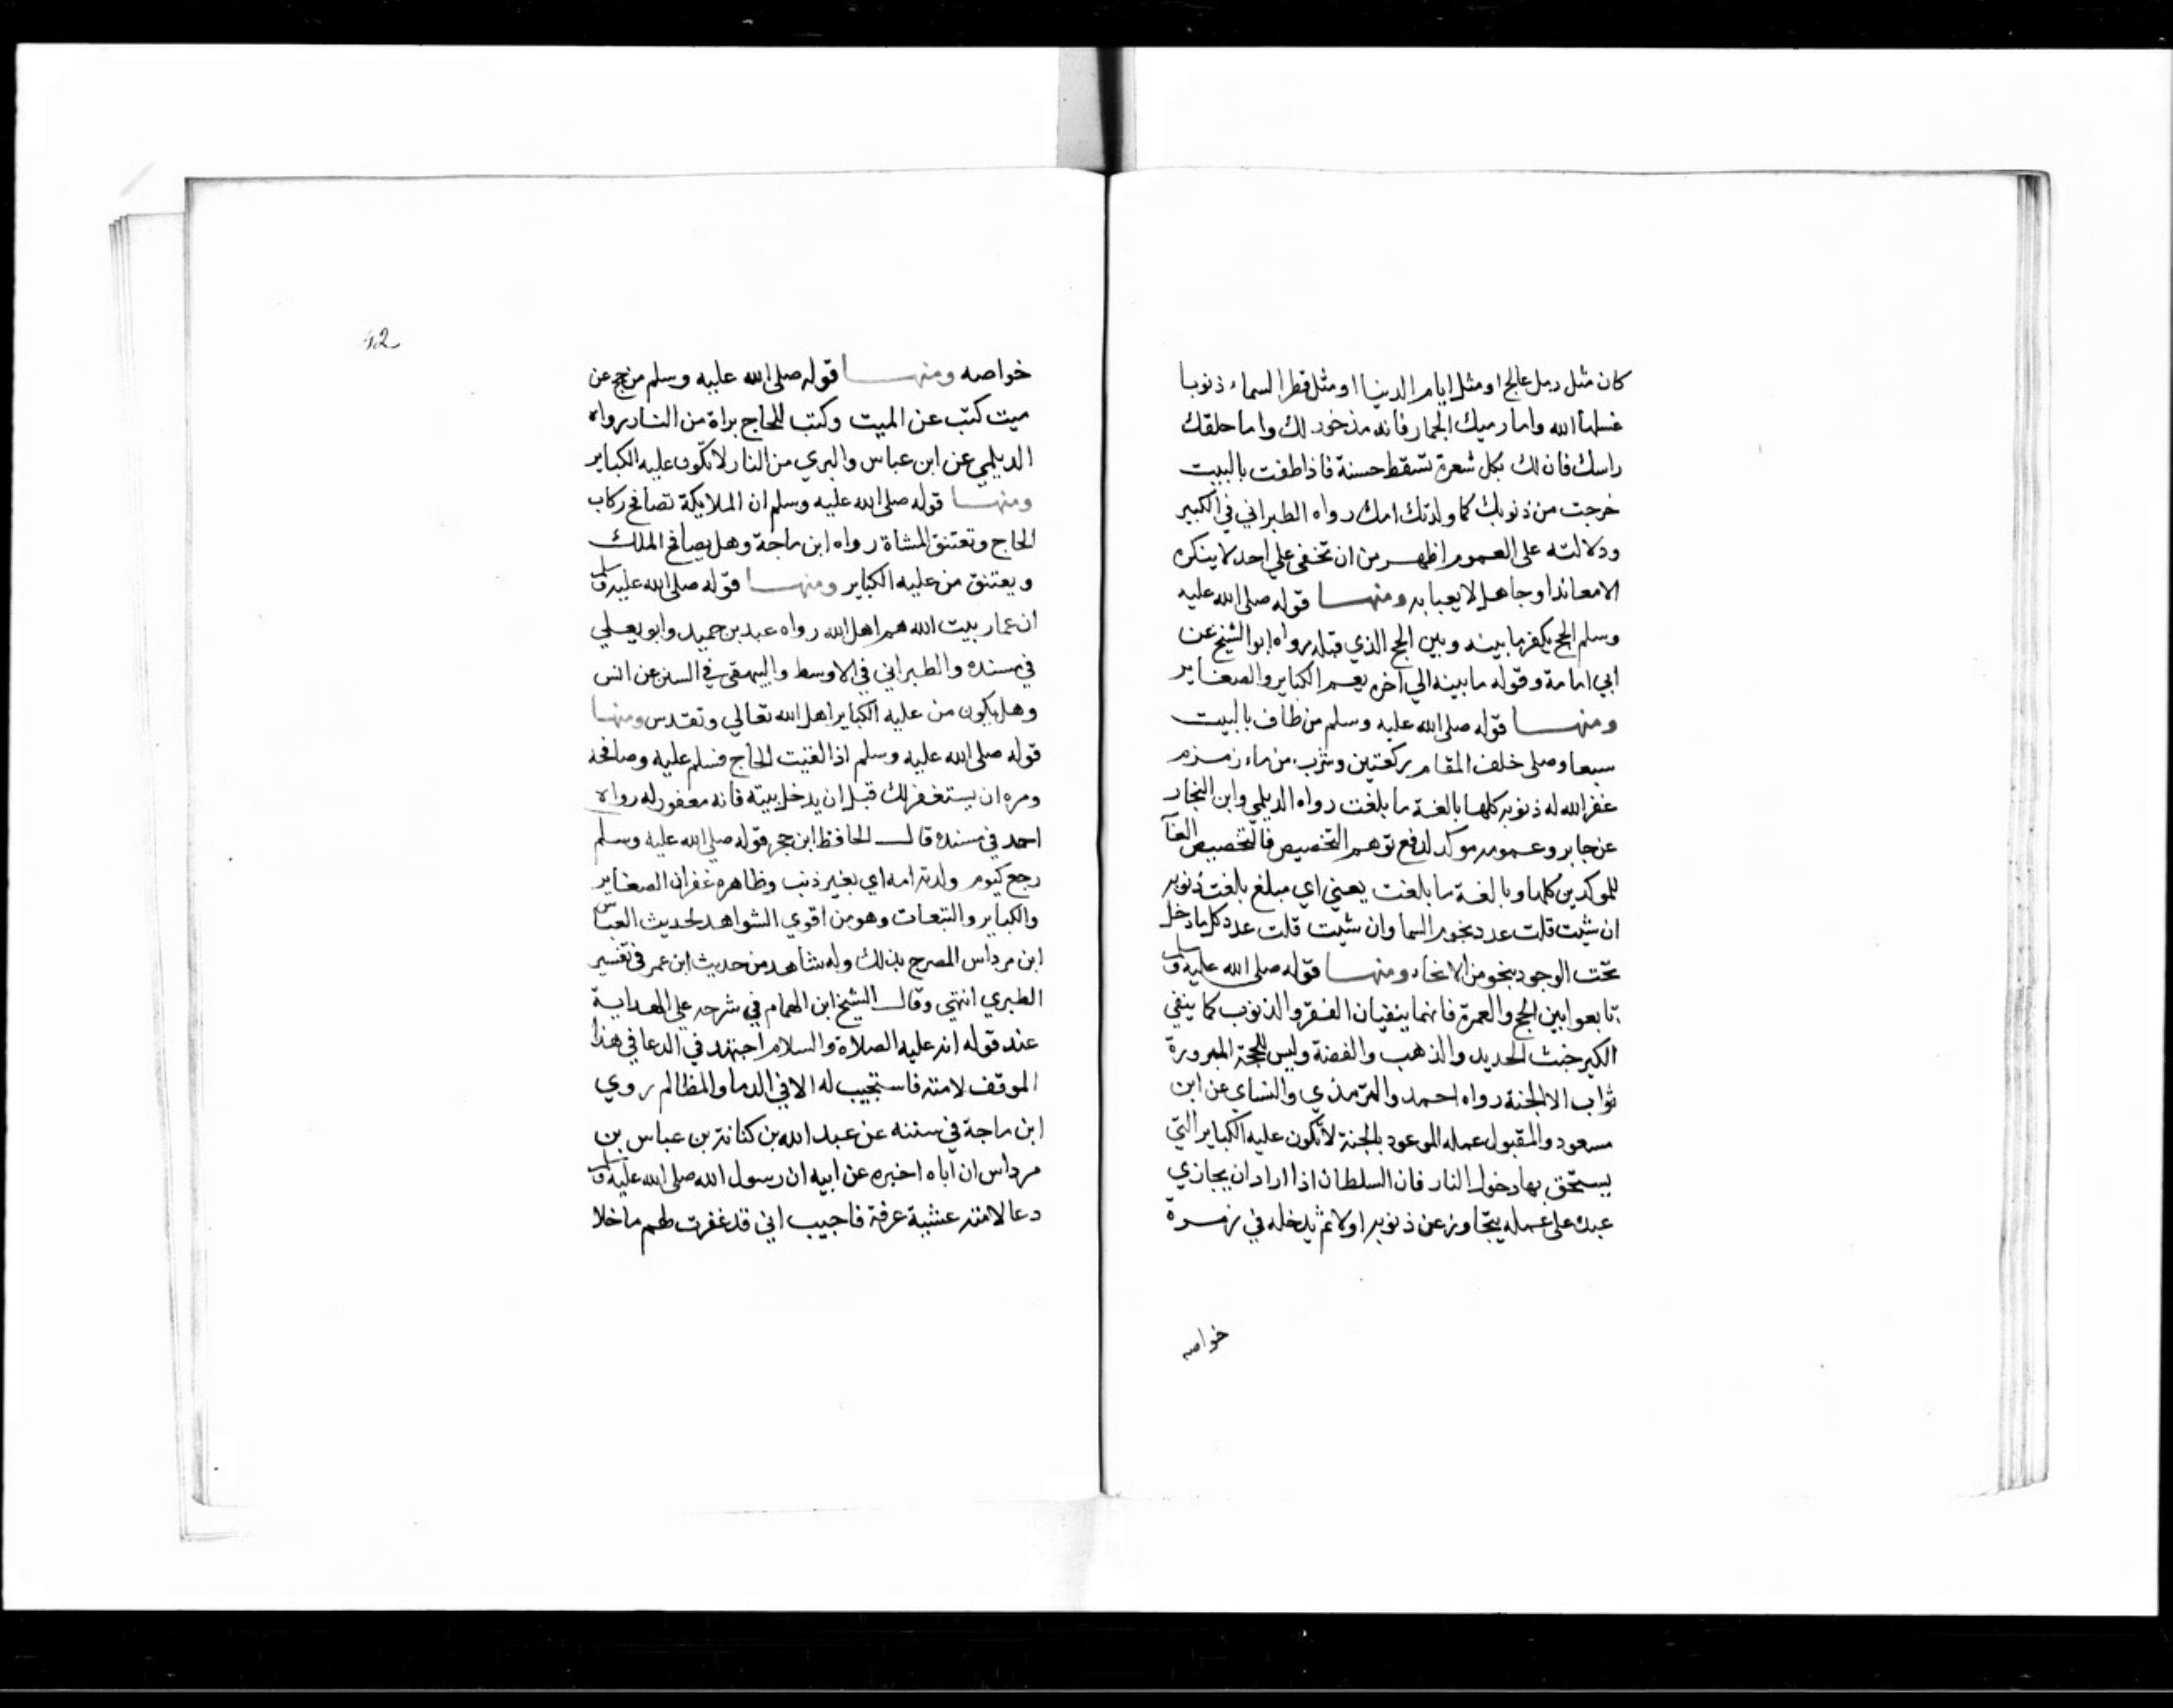 كان مثل رمل عالج او مثل ايام الدنيا او مثل قطر السماء ذنوبا
غسلها الله واما رميك الجمار فانه مذخور لك واما حلقك
راسك فان لك بكل شعرة تسقط حسنة فاذا طفت بالبيت
خرجت من ذنوبك كما ولدتك امك رواه الطبراني في الكبير
ودلالته على العموم اظهر من ان تخفى على احد لا ينكره
الا معاندا وجاهل لا يعبا به ومنها قوله صلى الله عليه
وسلم الحج يكفر ما بينه وبين الحج الذي قبله رواه ابوا الشيخ عن
ابي امامة وقوله ما بينه الي اخره يعم الكباير والصغاير
ومنها قوله صلى الله عليه وسلم من طاف بالبيت
سبعا وصلى خلف المقام ركعتين وشرب من ماء زمزم
غفر الله له ذنوبه كلها بالغة ما بلغت رواه الديلمي وابن النجار
عن جابر وعمومه موكد لدفع توهم التخصيص فالتخصيص
للموكدين كلها وبالغة ما بلغت يعني اي مبلغ بلغت ذنوبه
ان شيت قلت عدد نجوم السما وان شيت قلت عدد كل ما دخل
تحت الوجود بنحو من الانحاء ومنها قوله صلى الله عليه وسلم
تابعوا بين الحج والعمرة فانهما ينفيان الفقر والذنوب كما ينفي
الكير خبث الحديد والذهب والفضة وليس للحجة المبرورة
ثواب الا الجنة رواه احمد والترمذي والنساي عن ابن
مسعود والمقبول عمله الموعود بالجنة لا تكون عليه الكباير التي
يستحق بها دخول النار فان السلطان اذا اراد ان يجازي
عبده على عمله يتجاوز عن ذنوبه اولا ثم يدخله في زمرة
خواصه
42
خواصه ومنها قوله صلى الله عليه وسلم من حج عن
ميت كتب عن الميت وكتب للحاج براة من النار رواه
الديلمي عن ابن عباس والبري من النار لا تكون عليه الكباير
ومنها قوله صلى الله عليه وسلم ان الملايكة تصافح ركاب
الحاج وتعتنق المشاة رواه ابن ماجة وهل يصافح الملك
ويعتنق من عليه الكباير ومنها قوله صلى الله عليه وسلم
ان عمار بيت الله هم اهل الله رواه عبد بن حميد وابو يعلي
في مسنده والطبراني في الاوسط والبيهقي في السنن عن انس
وهل يكون من عليه الكباير اهل الله تعالي وتقدس ومنها
قوله صلى الله عليه وسلم اذا لقيت الحاج فسلم عليه وصافحه
ومره ان يستغفر لك قبل ان يدخل بيته فانه مغفور له رواه
احمد في مسنده قال الحافظ ابن حجر قوله صلى الله عليه وسلم
رجع كيوم ولدته امه اي بغير ذنب وظاهره غفران الصغاير
والكباير والتبعات وهو من اقوي الشواهد لحديث العباس
ابن مرداس المصرح بذلك وله شاهد من حديث ابن عمر في تفسير
الطبري انتهي وقال الشيخ ابن الهمام في شرحه على الهداية
عند قوله انه عليه الصلاة والسلام اجتهد في الدعا في هذا
الموقف لامته فاستجيب له الا في الدما والمظالم روي
ابن ماجة في سننه عن عبد الله بن كنانة بن عباس بن
مرداس ان اباه اخبره عن ابيه ان رسول الله صلى الله عليه وسلم
دعا لامته عشية عرفة فاجيب اني قد غفرت لهم ما خلا